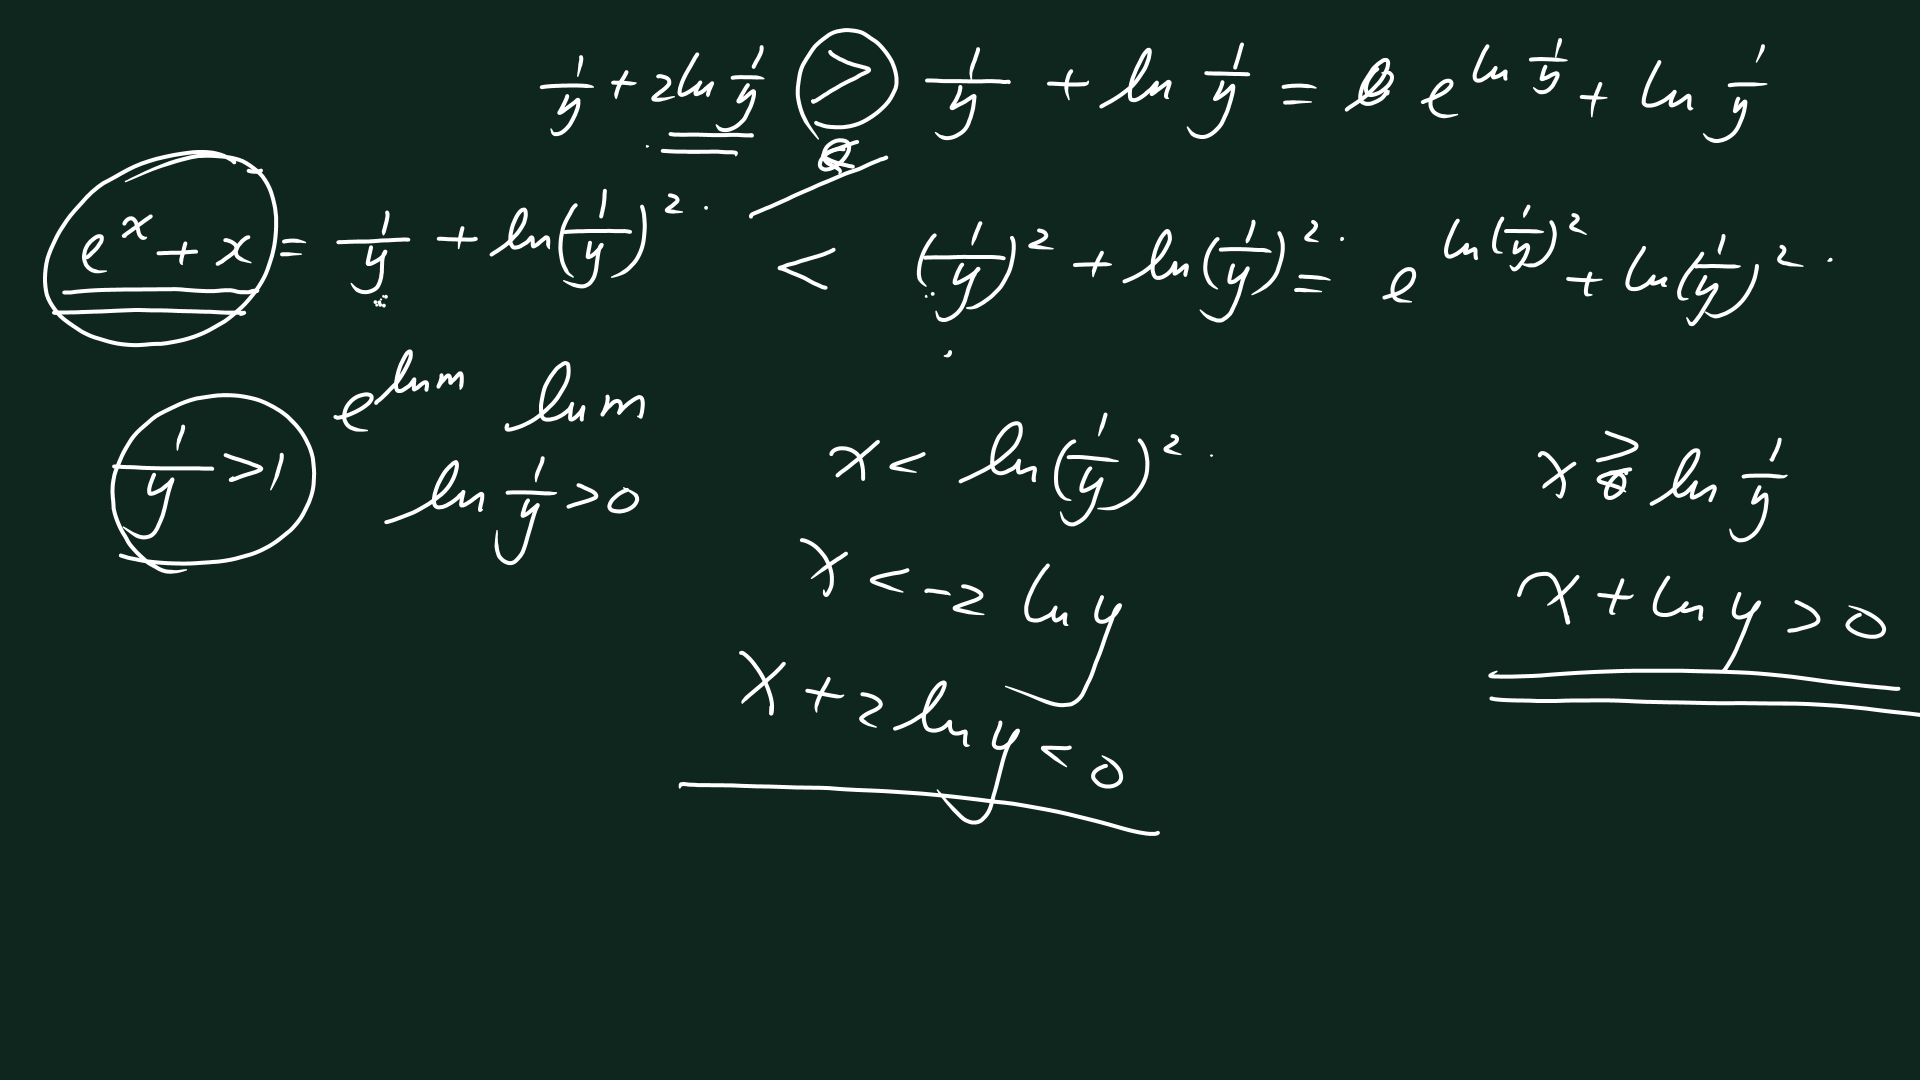 1/y + 2ln 1/y > 1/y + ln 1/y = e^{ln 1/y} + ln 1/y
e^x + x = 1/y + ln(1/y)^2 < (1/y)^2 + ln(1/y)^2 = e^{ln(1/y)^2} + ln(1/y)^2
e^{ln m} ln m
1/y > 1 ln 1/y > 0
x < ln(1/y)^2 x > ln 1/y
x < -2 ln y x + ln y > 0
x + 2 ln y < 0